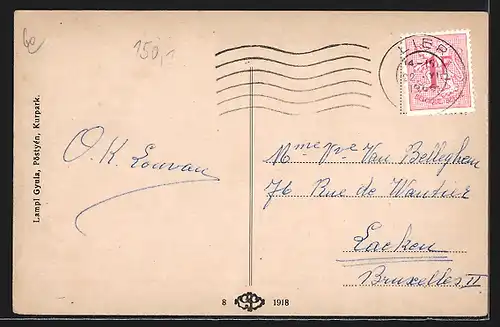 6e
150,-
LIER
1F
O. K. Louvau
Mme Vve Van Belleghen
76 Rue de Wautier
Laeken
Bruxelles II
Lampl Gyula, Pöstyén, Kurpark.
8 1918